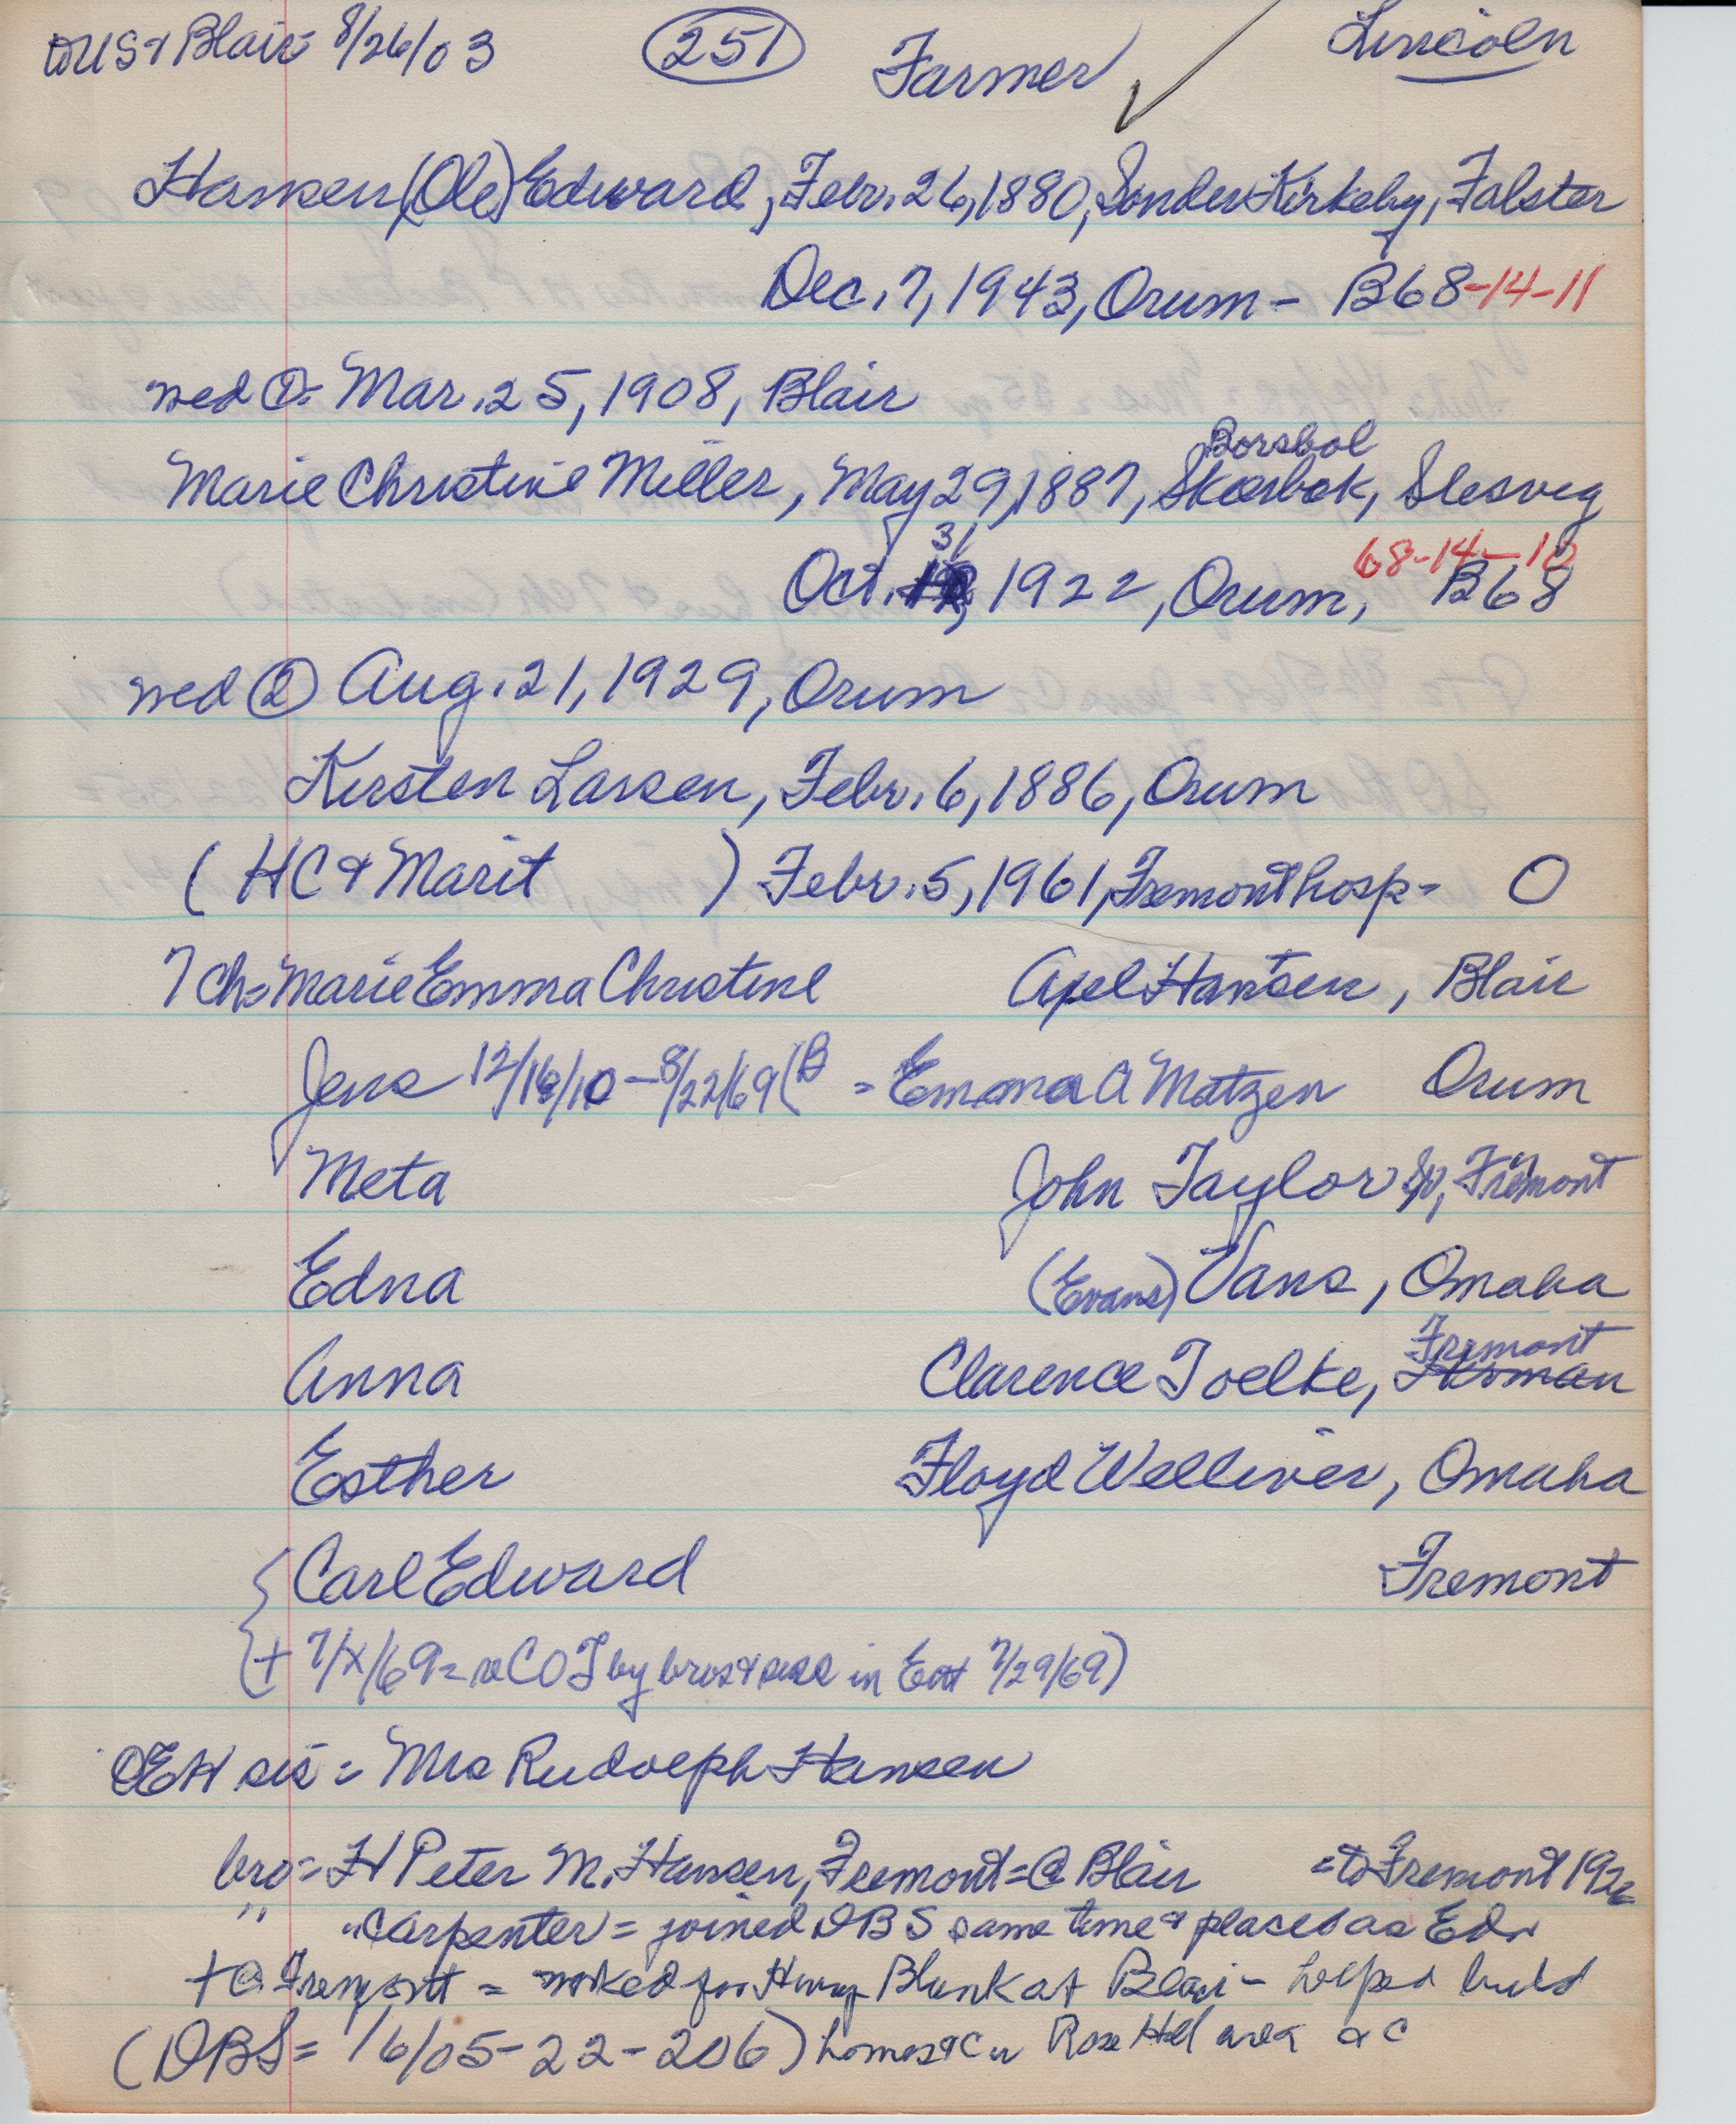 DUS & Blair 8/26/03 (251) Farmer ✓ Lincoln
Hansen (Ole) Edward, Febr. 26, 1880, Sonder Kirkeby, Falster
Dec. 7, 1943, Orum - B68-14-11
wed ①= Mar. 25, 1908, Blair
Borsbol
Marie Christine Miller, May 29, 1887, Skærbek, Slesvig
31 68-14-10
Oct. 1922, Orum, B68
wed ② Aug. 21, 1929, Orum
Kirsten Larsen, Febr. 6, 1886, Orum
(HC & Marit ) Febr. 5, 1961, Fremont hosp - O
7 ch= Marie Emma Christine Axel Hansen, Blair
Jens 12/16/10 - 8/22/69 (B = Emma A Matzen Orum
Meta John Taylor Sr, Fremont
Edna (Evans) Vans, Omaha
Fremont
Anna Clarence Toelke, Herman
Esther Floyd Welliver, Omaha
{ Carl Edward Fremont
(+ 7/x/69 = COT by bros & siss in Ent 7/29/69)
OEH sis = Mrs Rudolph Hansen
bro = H Peter M. Hansen, Fremont = @ Blair = to Fremont 192
" "carpenter = joined DBS same time & place as Ed.
+ @ Fremont = worked for Blunk at Blair - helped build
(DBS = 1/6/05-22-206) homes & C in Rose Hill area & C